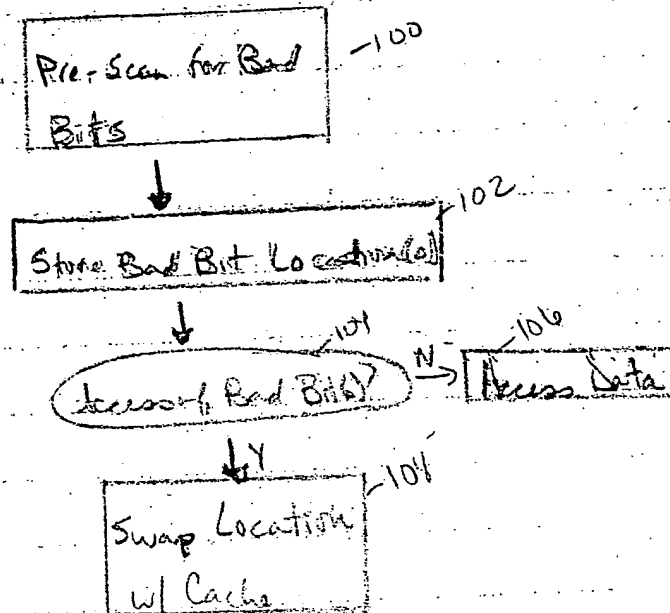 Pre-Scan for Bad
Bits
100
102
Store Bad Bit Location(s)
104
Access of Bad Bit(s)?
N
106
Access Data
Y
Swap Location
w/ Cache